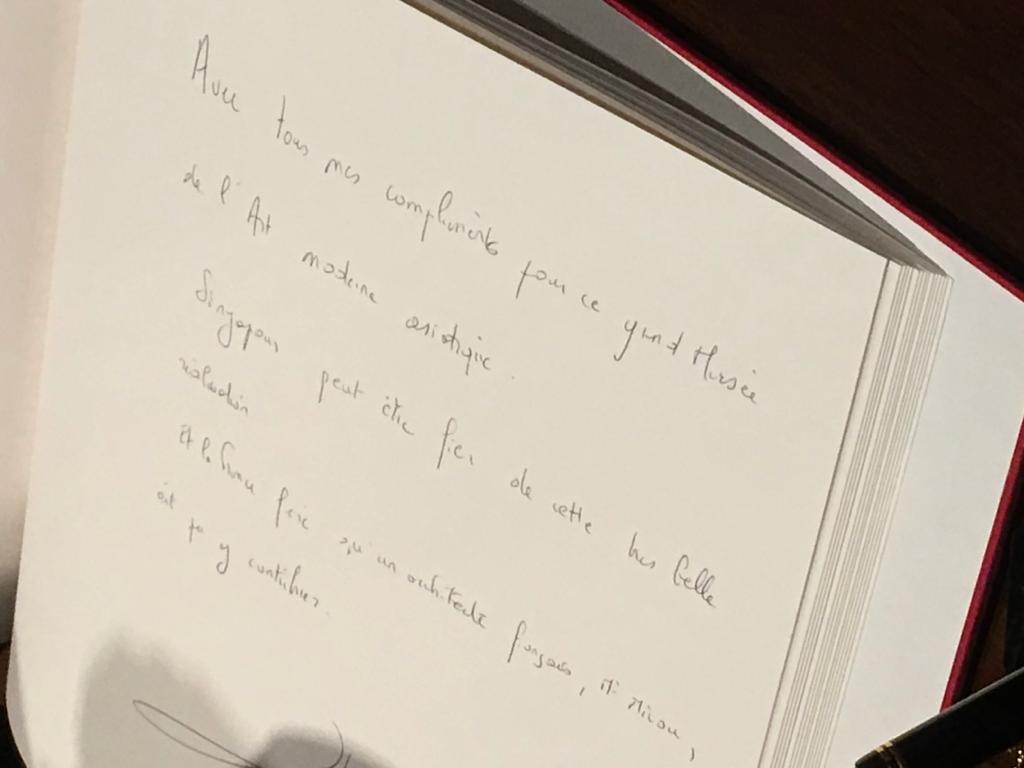 Avec tous mes compliments pour ce grand Musée
de l'Art moderne asiatique.
Singapour peut être fier de cette très belle
réalisation
Et la France fière qu'un architecte français, M. Milou,
ait pu y contribuer.